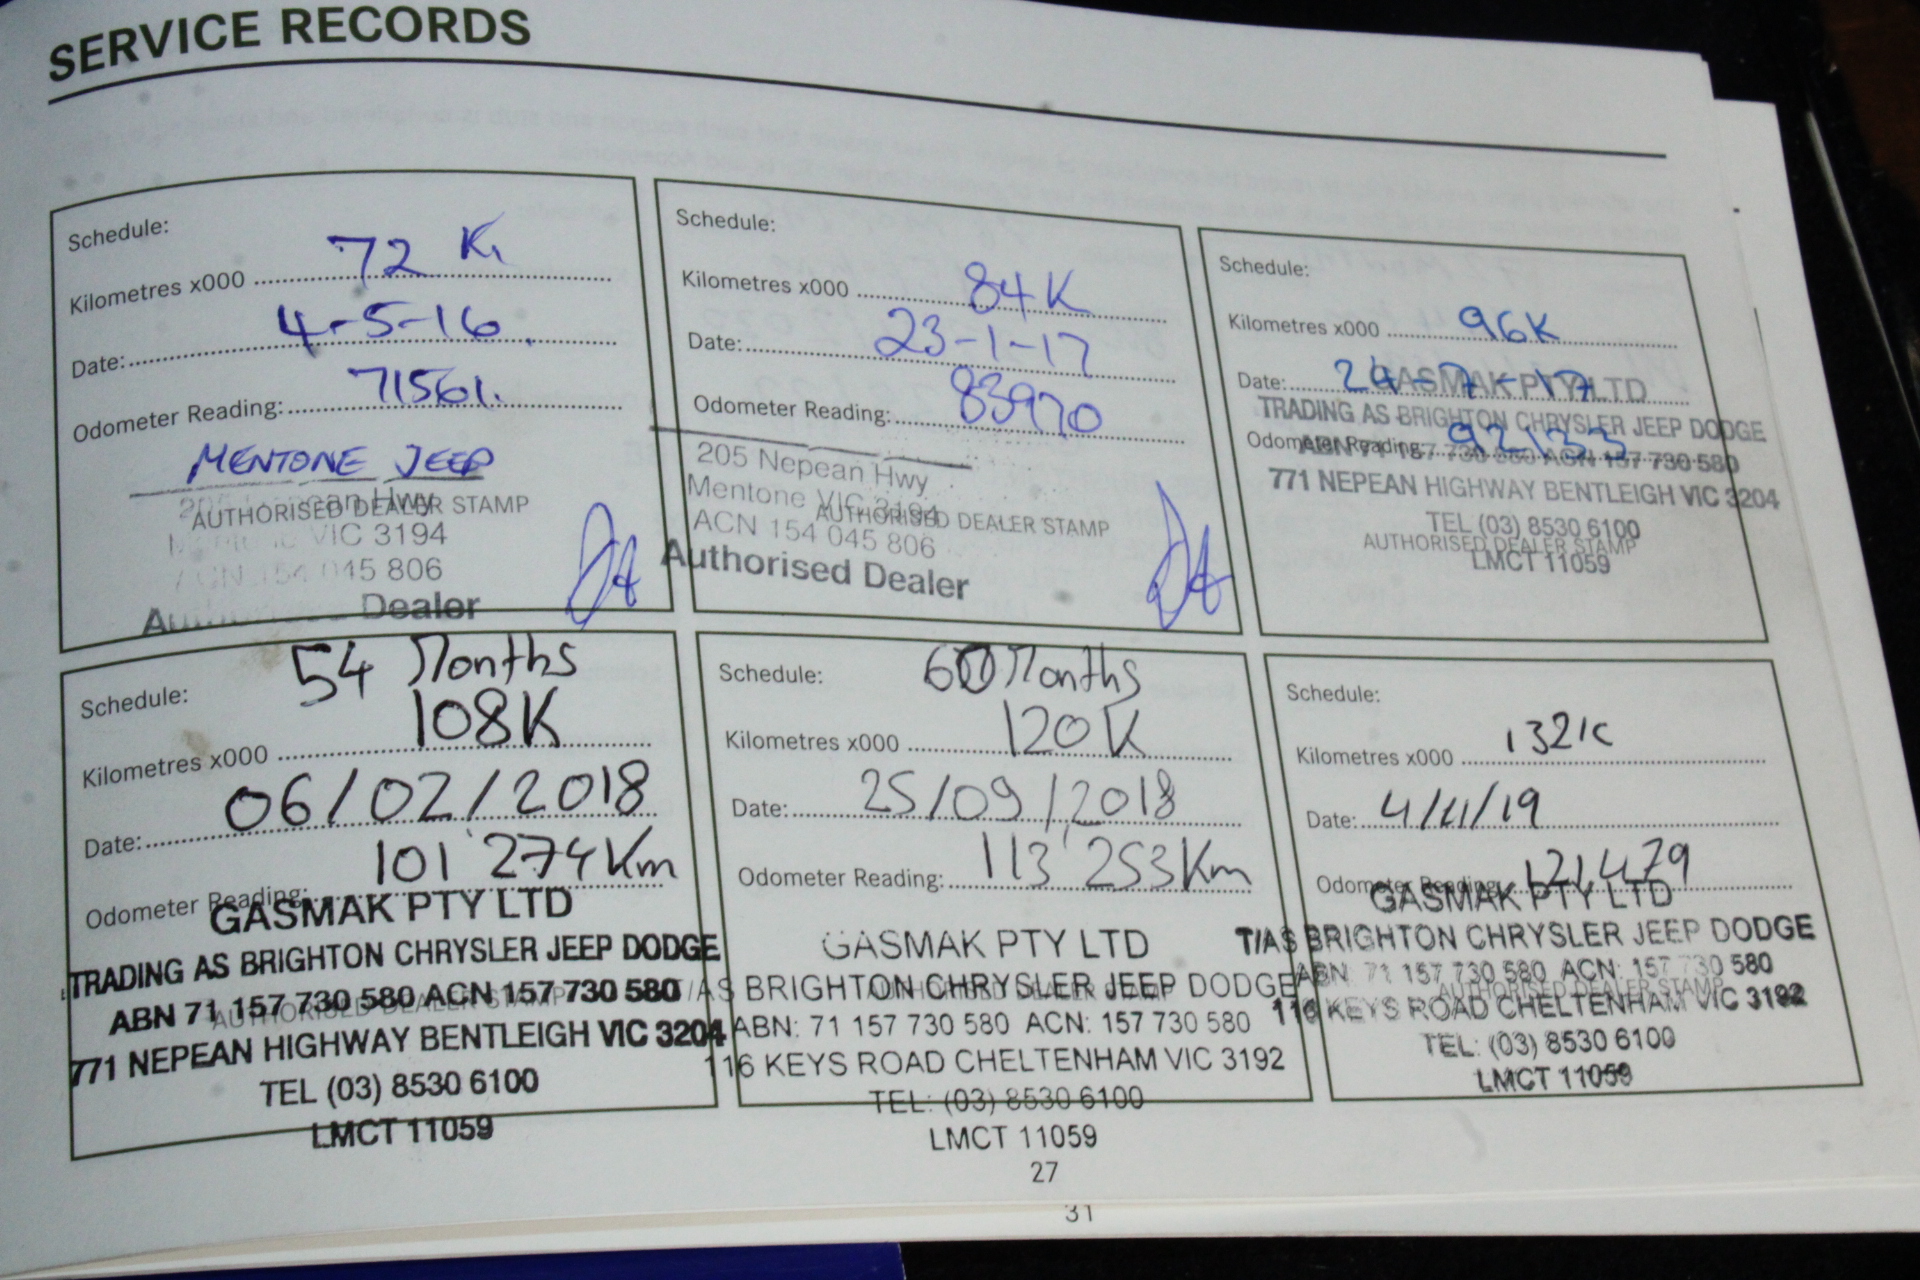 SERVICE RECORDS
Schedule:
Kilometres x000 72 K
Date: 4-5-16
Odometer Reading: 71561.
MENTONE JEEP
AUTHORISED DEALER STAMP
VIC 3194
045 806
Dealer
Schedule:
Kilometres x000 84K
Date: 23-1-17
Odometer Reading: 83970
205 Nepean Hwy
Mentone VIC 3194
AUTHORISED DEALER STAMP
ACN 154 045 806
Authorised Dealer
Schedule:
Kilometres x000 96K
Date: 24-7-17
GASMAK PTY LTD
TRADING AS BRIGHTON CHRYSLER JEEP DODGE
Odometer Reading: 92133
ABN 71 157 730 580 ACN 157 730 580
771 NEPEAN HIGHWAY BENTLEIGH VIC 3204
TEL (03) 8530 6100
AUTHORISED DEALER STAMP
LMCT 11059
Schedule: 54 Months
Kilometres x000 108K
Date: 06/02/2018
Odometer Reading: 101'274Km
GASMAK PTY LTD
TRADING AS BRIGHTON CHRYSLER JEEP DODGE
ABN 71 157 730 580 ACN 157 730 580
AUTHORISED DEALER STAMP
771 NEPEAN HIGHWAY BENTLEIGH VIC 3204
TEL (03) 8530 6100
LMCT 11059
Schedule: 60 Months
Kilometres x000 120K
Date: 25/09/2018
Odometer Reading: 113'253Km
GASMAK PTY LTD
T/AS BRIGHTON CHRYSLER JEEP DODGE
AUTHORISED DEALER STAMP
ABN: 71 157 730 580 ACN: 157 730 580
116 KEYS ROAD CHELTENHAM VIC 3192
TEL: (03) 8530 6100
LMCT 11059
Schedule:
Kilometres x000 132K
Date: 4/11/19
Odometer Reading: 121,479
GASMAK PTY LTD
T/AS BRIGHTON CHRYSLER JEEP DODGE
ABN: 71 157 730 580 ACN: 157 730 580
AUTHORISED DEALER STAMP
116 KEYS ROAD CHELTENHAM VIC 3192
TEL: (03) 8530 6100
LMCT 11059
27
31